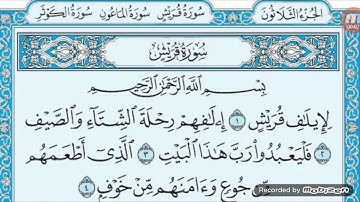 الجزء الثلاثون سورة قريش سورة الماعون سورة الكوثر
سورة قريش
بِسْمِ ٱللَّهِ ٱلرَّحْمَٰنِ ٱلرَّحِيمِ
لِإِيلَٰفِ قُرَيْشٍ ١ إِۦلَٰفِهِمْ رِحْلَةَ ٱلشِّتَآءِ وَٱلصَّيْفِ
٢ فَلْيَعْبُدُوا۟ رَبَّ هَٰذَا ٱلْبَيْتِ ٣ ٱلَّذِىٓ أَطْعَمَهُم
مِّن جُوعٍ وَءَامَنَهُم مِّنْ خَوْفٍ ٤
Recorded by